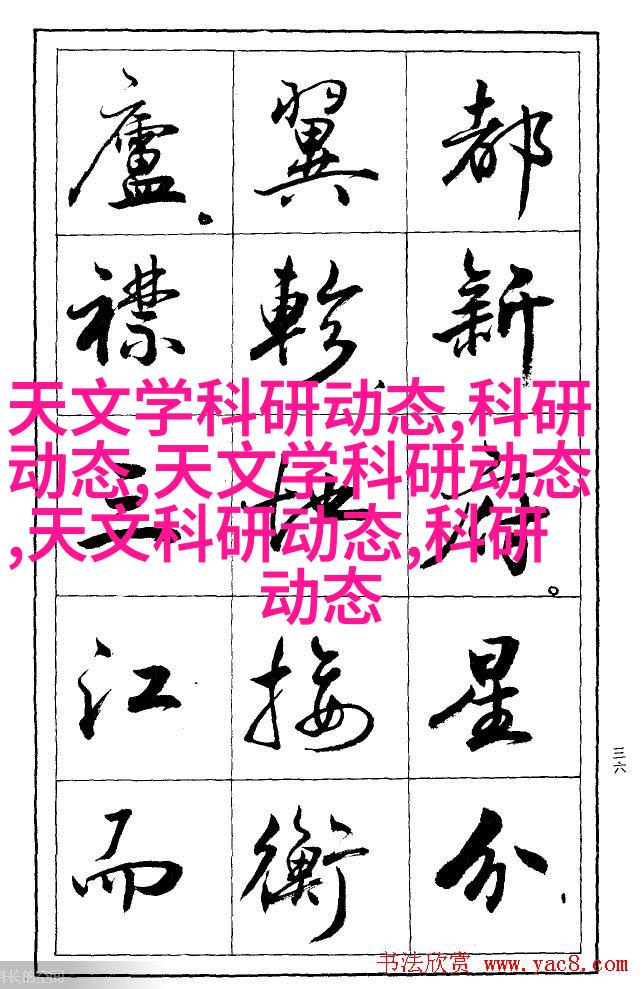 都新府。星分、
翼軫、地接衡
廬。襟三江而
天文学科研动态,科研
动态,天文学科研动态
,天文科研动态,科研
动态
三六
书法欣赏 www.yac8.com
长的空间